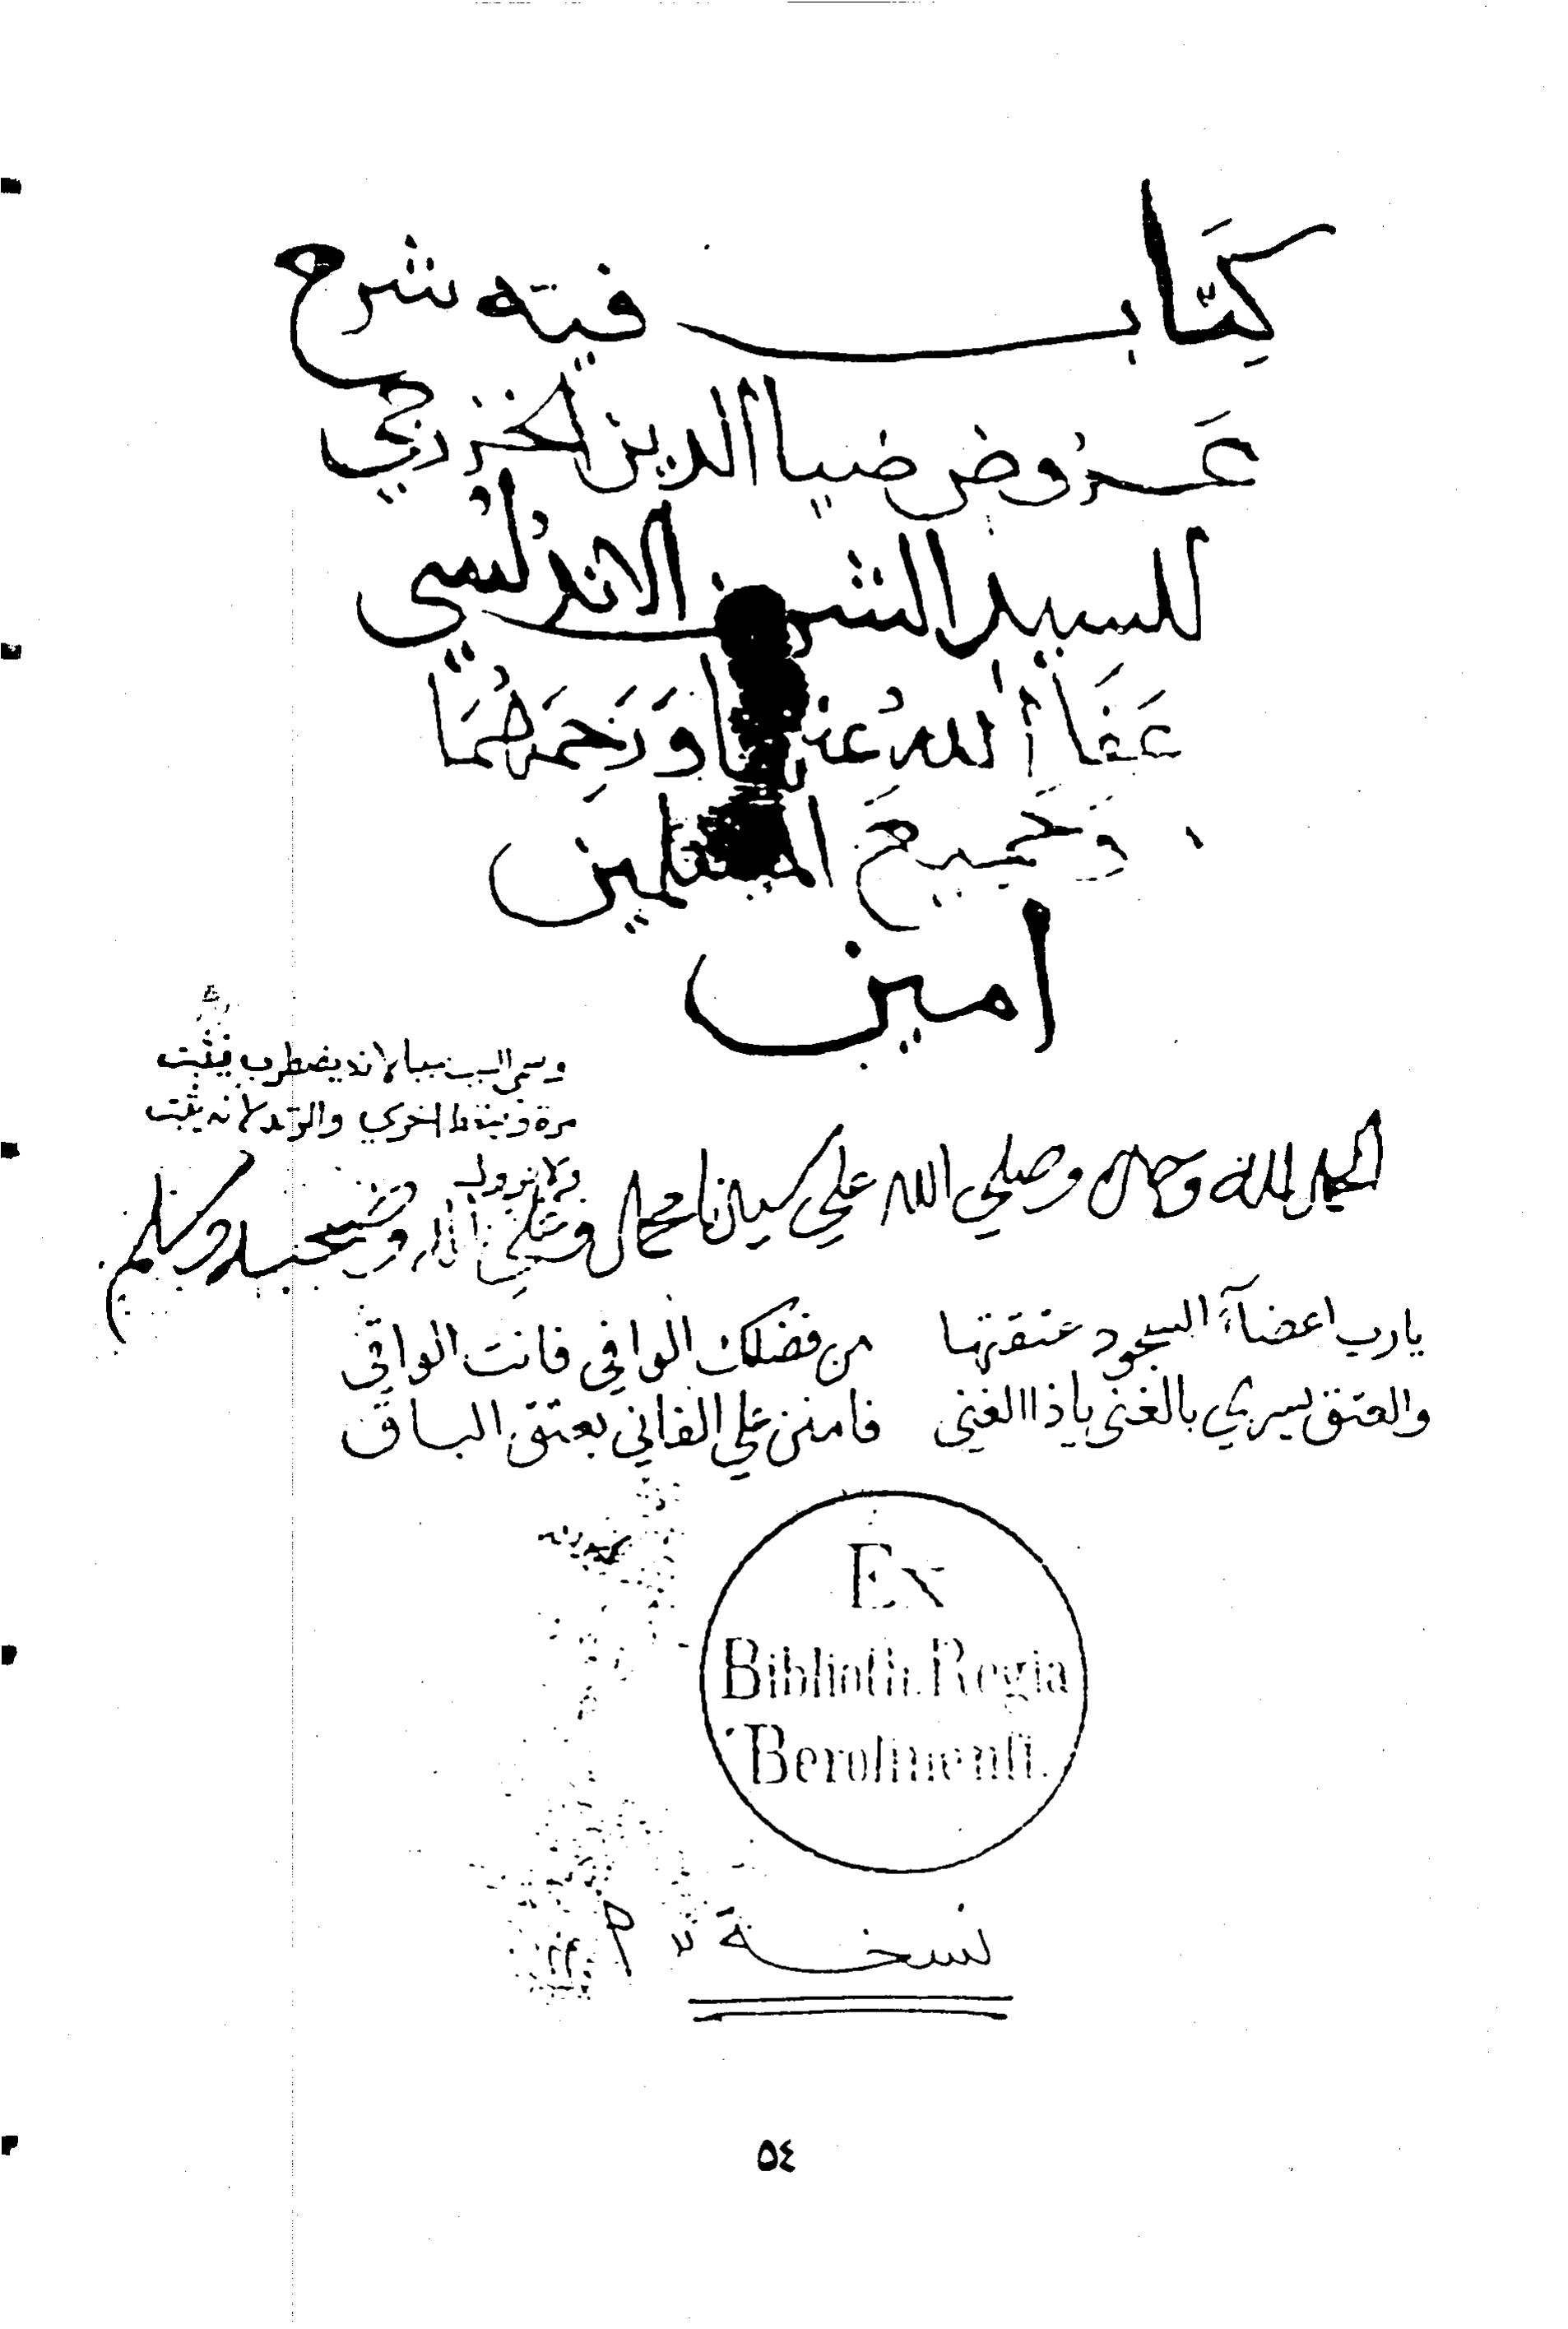 كِتَاب فيه شرح
عَروض ضيا الدين الخزرجي
للسيد الشريف الاندلسي
عَفَا اللهُ عنهما وَرَحِمَهُمَا
وَجَميعَ المسلمين
امين
وسمي السبب سببا لانه يضطرب فيثبت
مرة ويسقط اخري والوتد لانه يثبت
ولا يزول
الحمد لله وحده وصلي الله علي سيدنا محمد وعلي اله وصحبه وسلم
يا رب اعضآءَ السجود عتقتها من فضلك الوافي فانت الواقي
والعتق يسري بالغني يا ذا الغني فامنن علي الفاني بعتق الباق
Ex
Biblioth. Regia
Berolinenſi.
نسخة
٥٤